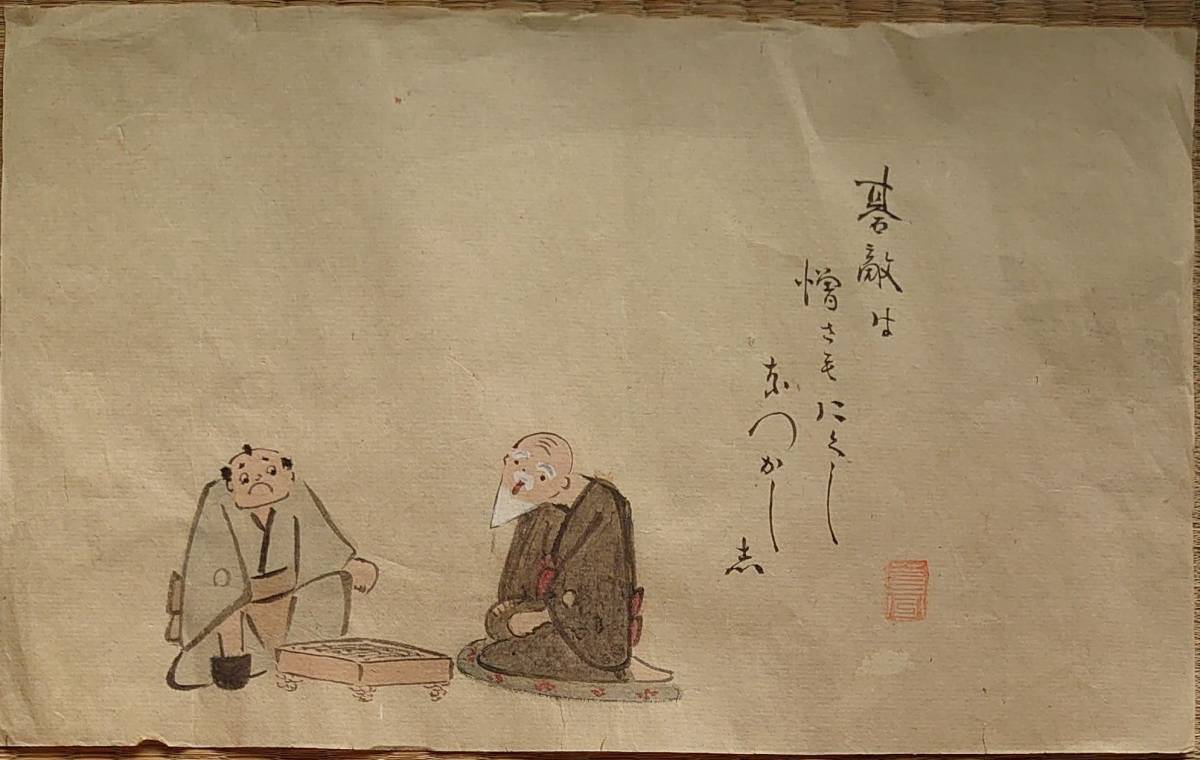 碁敵は
憎さもにくし
なつかし
志